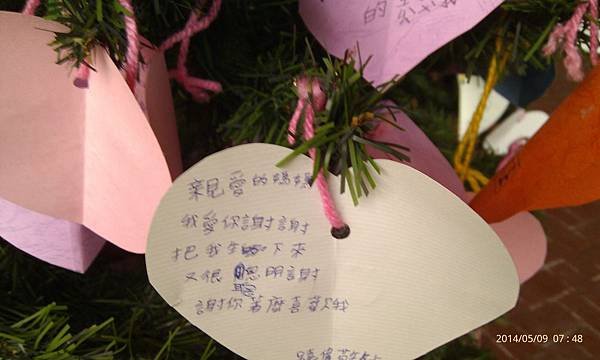 的
親愛的媽媽
我愛你謝謝
把我生下來
又很聰明謝
謝你著麼喜歡我
2014/05/09 07:48